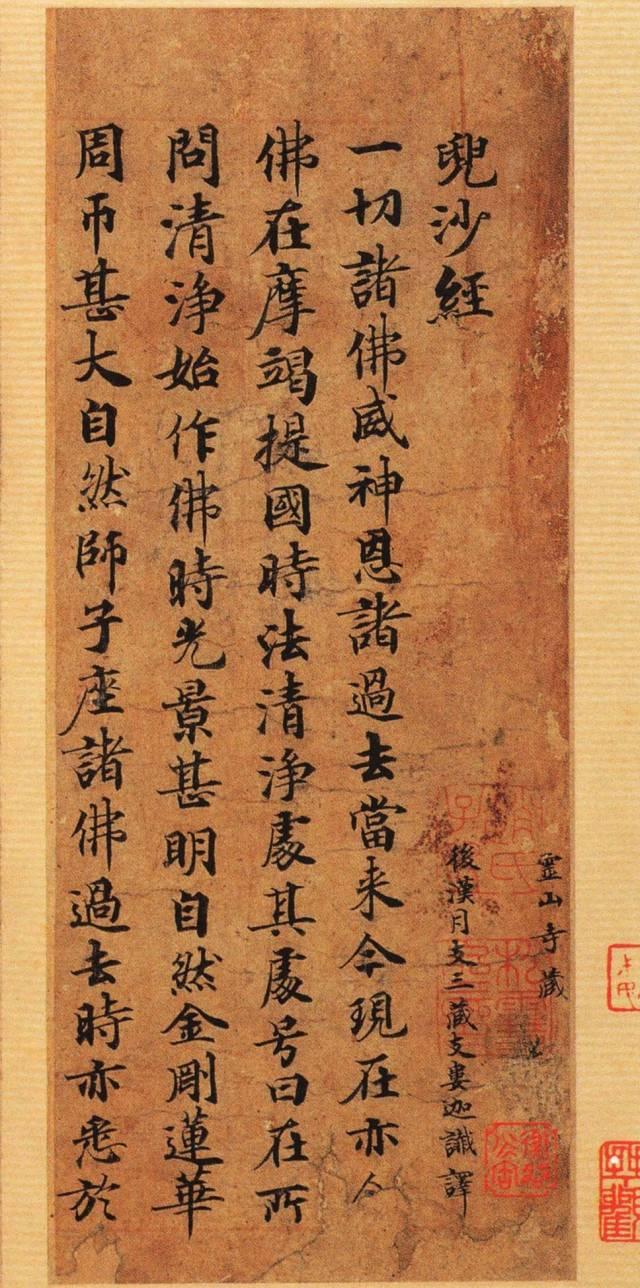 霊山寺藏
兜沙經
後漢月支三藏支婁迦讖譯
一切諸佛威神恩諸過去當来今現在亦尒
佛在摩竭提國時法清淨處其處号曰在所
問清淨始作佛時光景甚明自然金剛蓮華
周帀甚大自然師子座諸佛過去時亦悉於